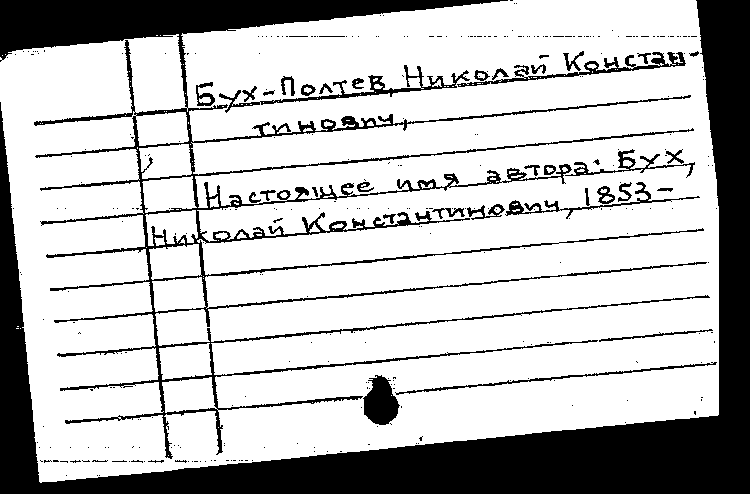 Бух-Полтев, Николай Констан-
тинович,
Настоящее имя автора: Бух,
Николай Константинович, 1853-